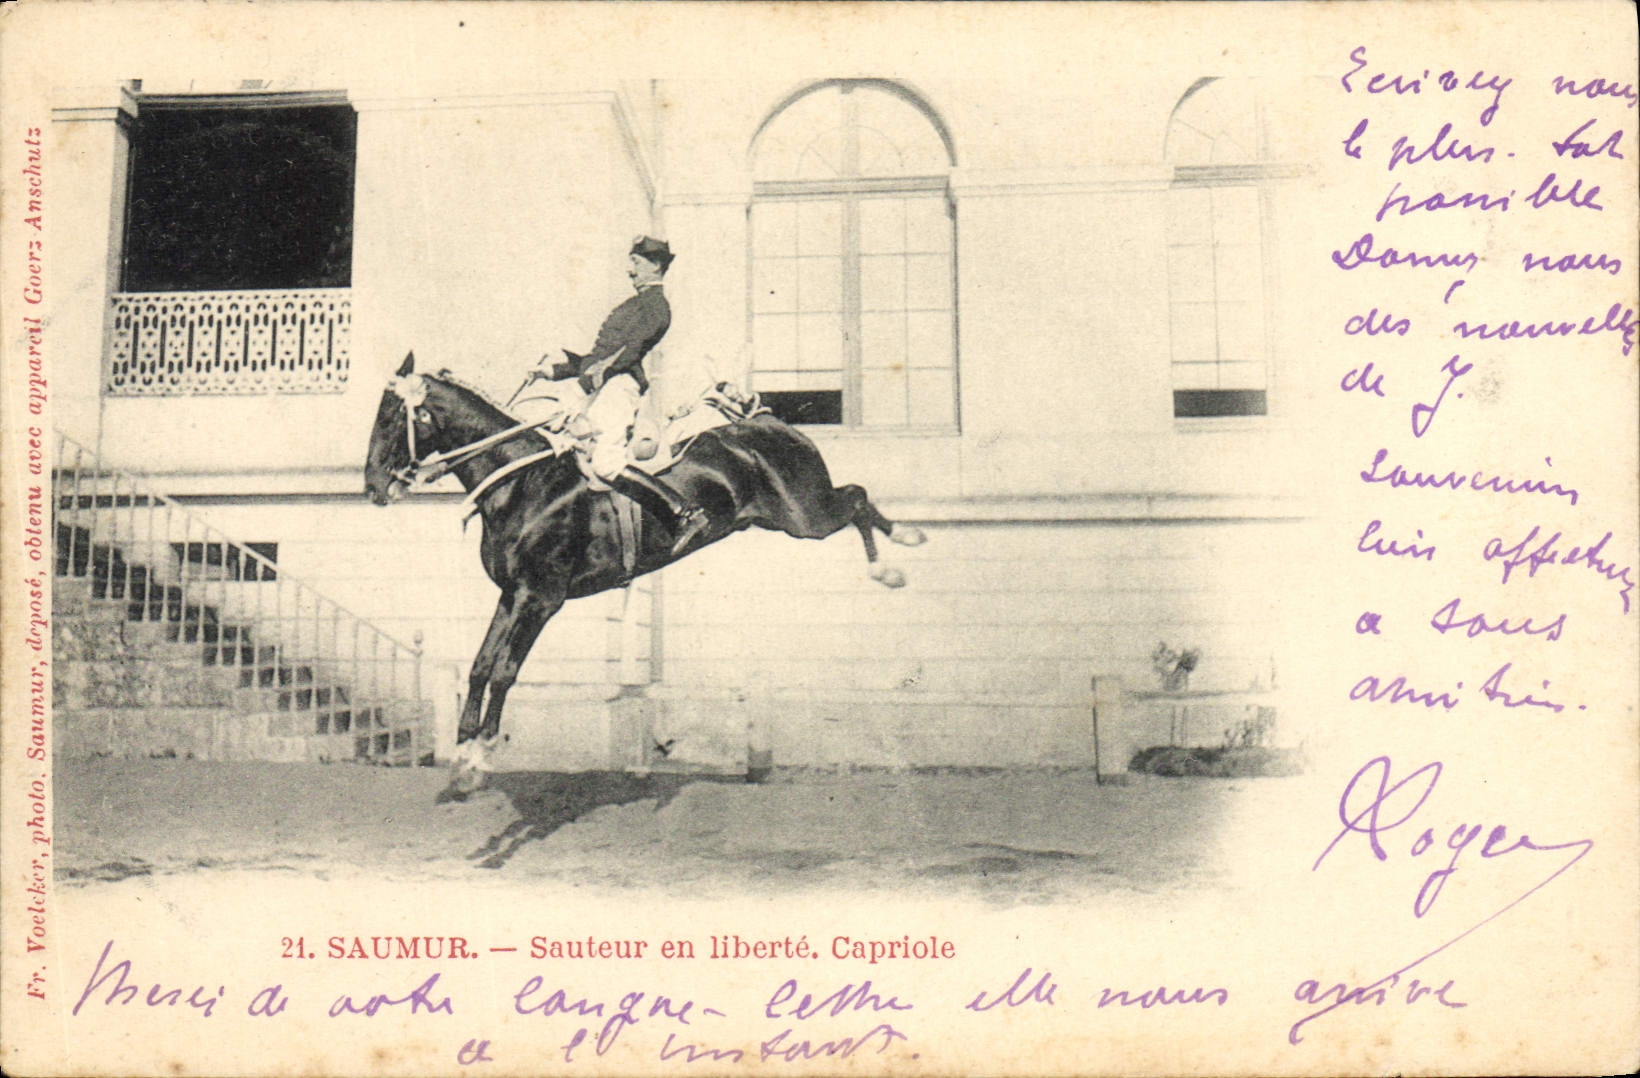 Fr. Voelcker, photo. Saumur, déposé, obtenu avec appareil Goerz-Anschutz
Ecrivez nous
le plus tôt
possible
Donnez nous
des nouvelles
de J.
Souvenirs
bien affectueux
a tous
amitiés.
Roger
21. SAUMUR. — Sauteur en liberté. Capriole
Merci de votre longue lettre elle nous arrive
a l'instant.